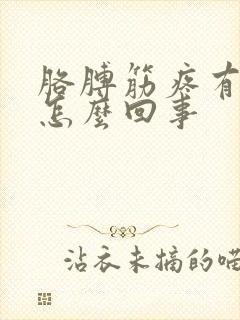 胳膊筋疼有
怎麼回事
沾衣未摘的喵